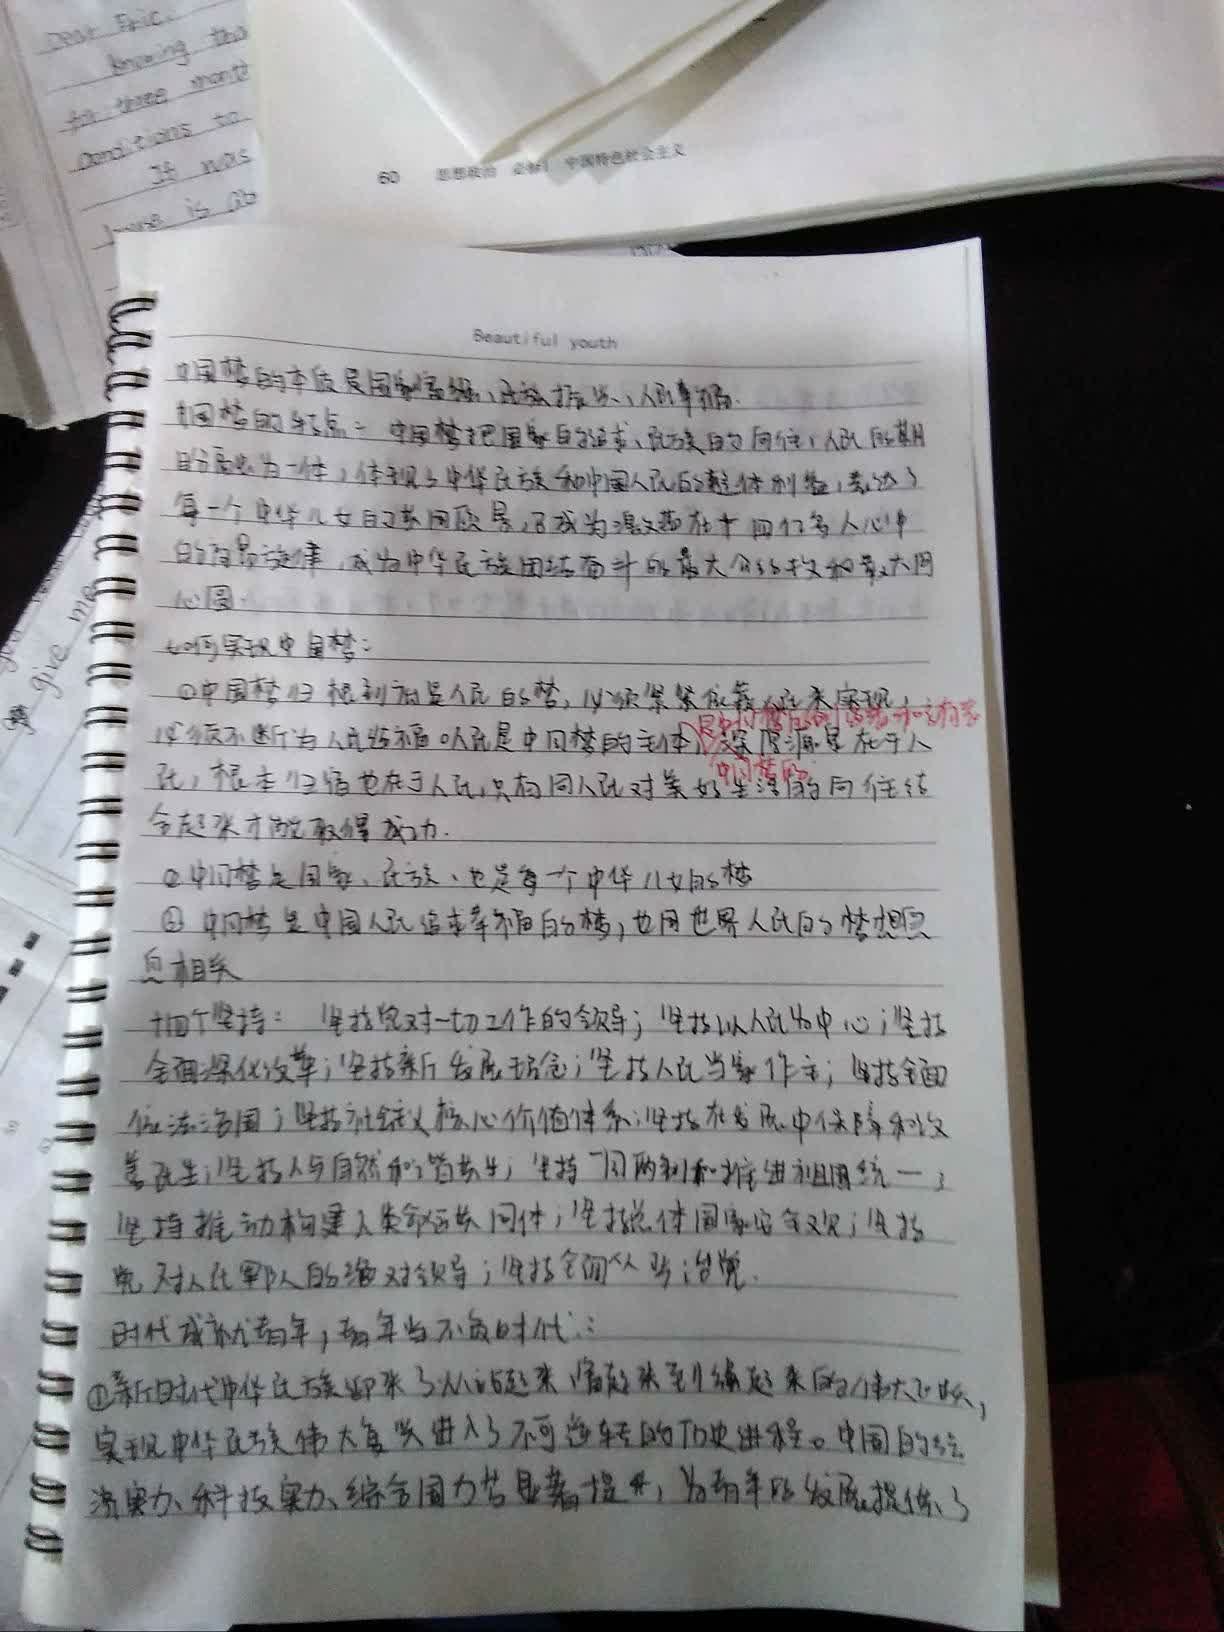 Dear Eric.
Knowing tha
for three month
conditions to
It was
house is ab
60 思想政治 必修1 中国特色社会主义
give me
Beautiful youth
中国梦的本质是国家富强、民族振兴、人民幸福.
中国梦的特点: 中国梦把国家的追求、民族的向往、人民的期
盼融为一体,体现了中华民族和中国人民的整体利益,表达了
每一个中华儿女的共同愿景,已成为激荡在十四亿多人心中
的高昂旋律,成为中华民族团结奋斗的最大公约数和最大同
心圆
如何实现中国梦:
①中国梦归根到底是人民的梦,必须紧紧依靠人民来实现,
必须不断为人民造福。人民是中国梦的主体,是中国梦的创造者和享有者
中国梦的
深厚源泉在于人
民,根本归宿也在于人民,只有同人民对美好生活的向往结
合起来才能取得成功.
②中国梦是国家、民族、也是每一个中华儿女的梦
③中国梦是中国人民追求幸福的梦,也同世界人民的梦想息
息相关
十四个坚持: 坚持党对一切工作的领导;坚持以人民为中心;坚持
全面深化改革;坚持新发展理念;坚持人民当家作主;坚持全面
依法治国;坚持社会主义核心价值体系;坚持在发展中保障和改
善民生;坚持人与自然和谐共生;坚持一国两制和推进祖国统一;
坚持推动构建人类命运共同体;坚持总体国家安全观;坚持
党对人民军队的绝对领导;坚持全面从严治党.
时代成就青年,青年当不负时代:
①新时代中华民族迎来了从站起来、富起来到强起来的伟大飞跃,
实现中华民族伟大复兴进入了不可逆转的历史进程。中国的经
济实力、科技实力、综合国力等显著提升,为青年的发展提供了